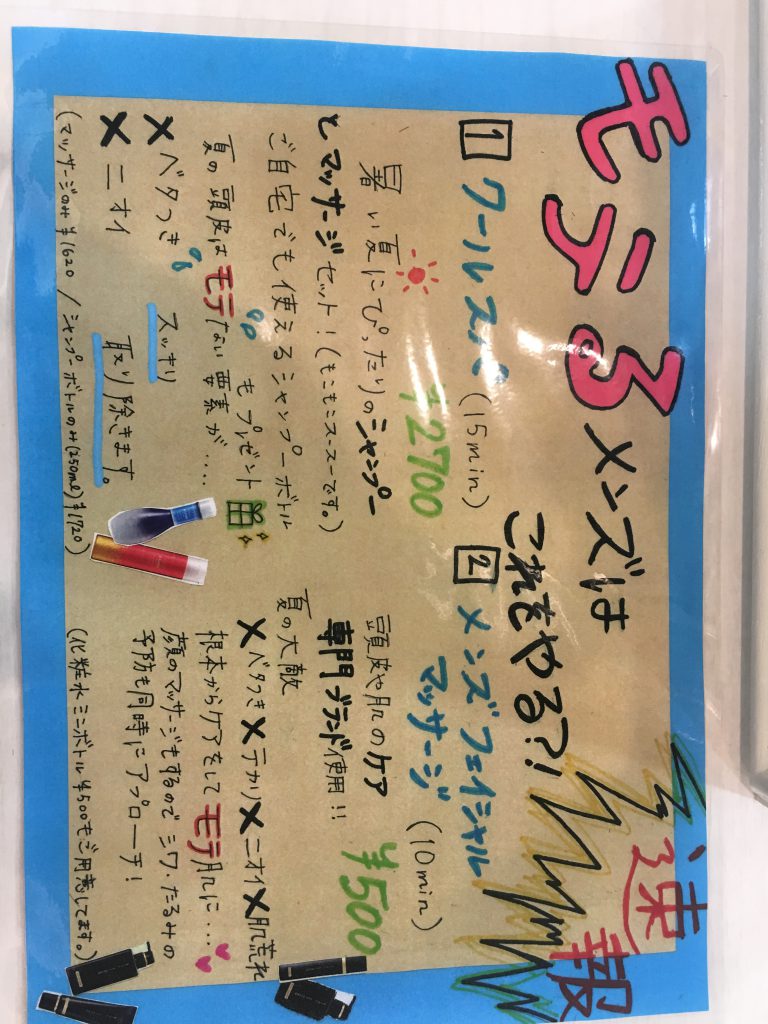 モテるメンズは
これをやる?!
速報
1 クールスパ (15min)
¥2700
暑い夏にぴったりのシャンプー
とマッサージセット！(もこもこスースーです。)
ご自宅でも使えるシャンプーボトル
もプレゼント
夏の頭皮はモテない要素が....
×ベタつき スッキリ
×ニオイ 取り除きます。
(マッサージのみ¥1620/シャンプーボトルのみ(250ml)¥1720)
2 メンズフェイシャル
マッサージ (10min)
¥500
頭皮や肌のケア
専門ブランド使用!!
夏の大敵
×ベタつき×テカリ×ニオイ×肌荒れ
根本からケアをしてモテ肌に...
顔のマッサージもするのでシワ・たるみの
予防も同時にアプローチ!
(化粧水ミニボトル¥500もご用意してます。)